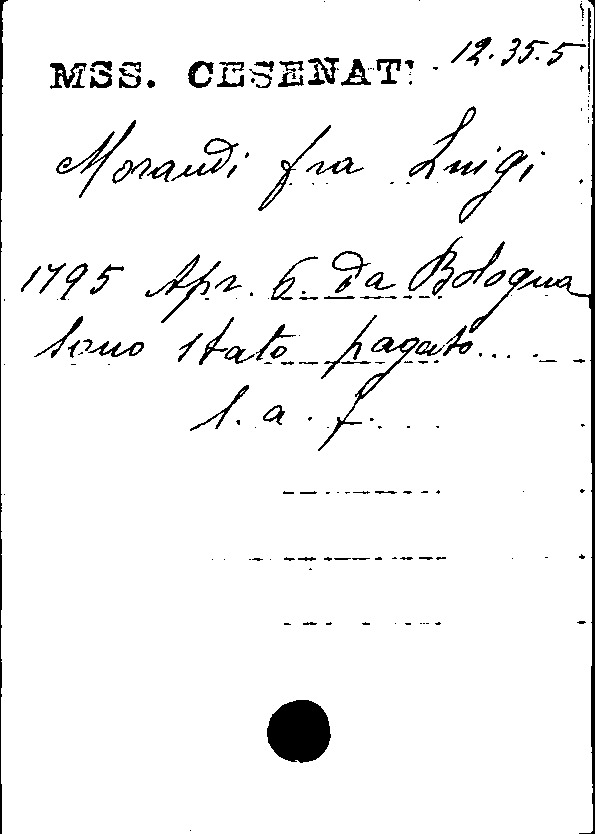 MSS. CESENATI 12.35.5
Morandi fra Luigi
1795 Apr. 6. Da Bologna
Sono stato pagato....
l. a. f.